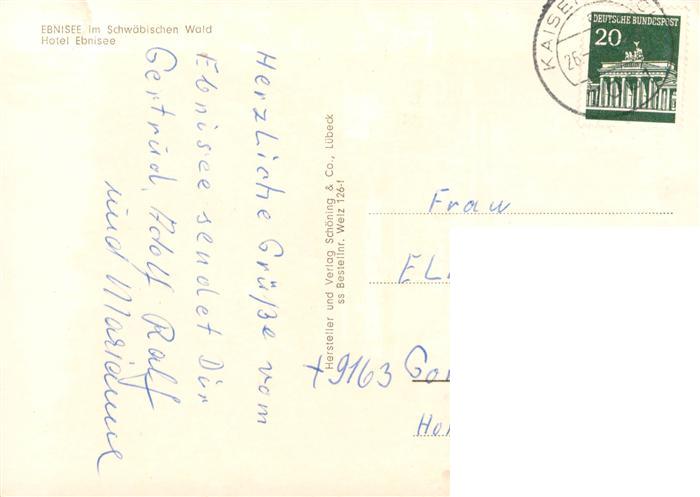 EBNISEE im Schwäbischen Wald
Hotel Ebnisee
Herzliche Grüße vom
Ebnisee sendet Dir
Gertrud, Adolf Ralf
und Marianne
Hersteller und Verlag Schöning & Co., Lübeck
ss Bestellnr. Welz 126-f
KAISE
26.
DEUTSCHE BUNDESPOST
20
Frau
9163